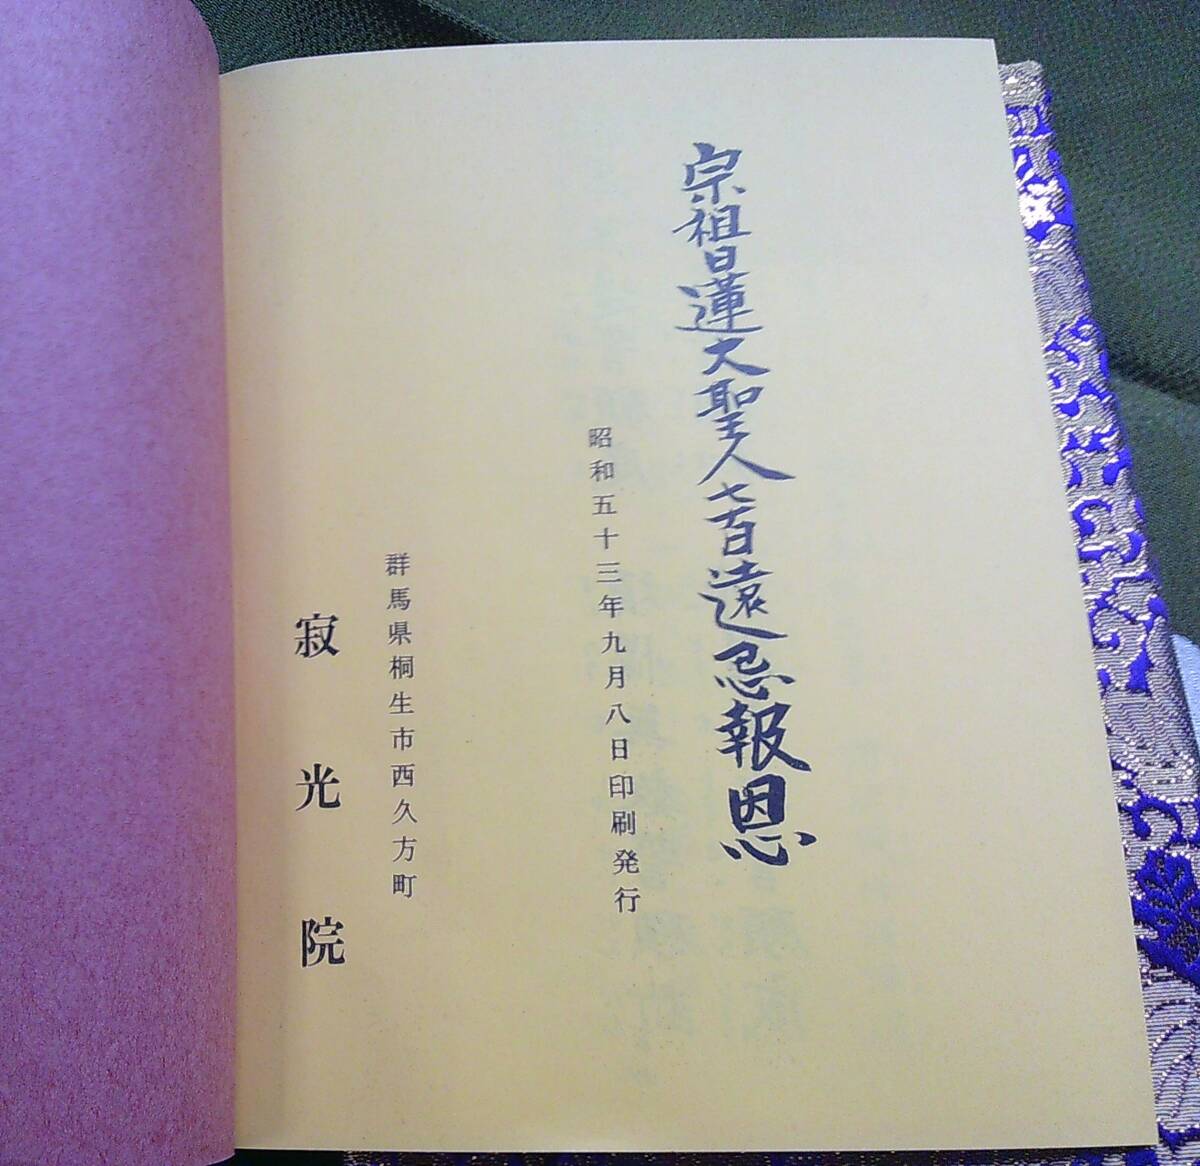 宗祖日蓮大聖人七百遠忌報恩
昭和五十三年九月八日印刷発行
群馬県桐生市西久方町
寂光院